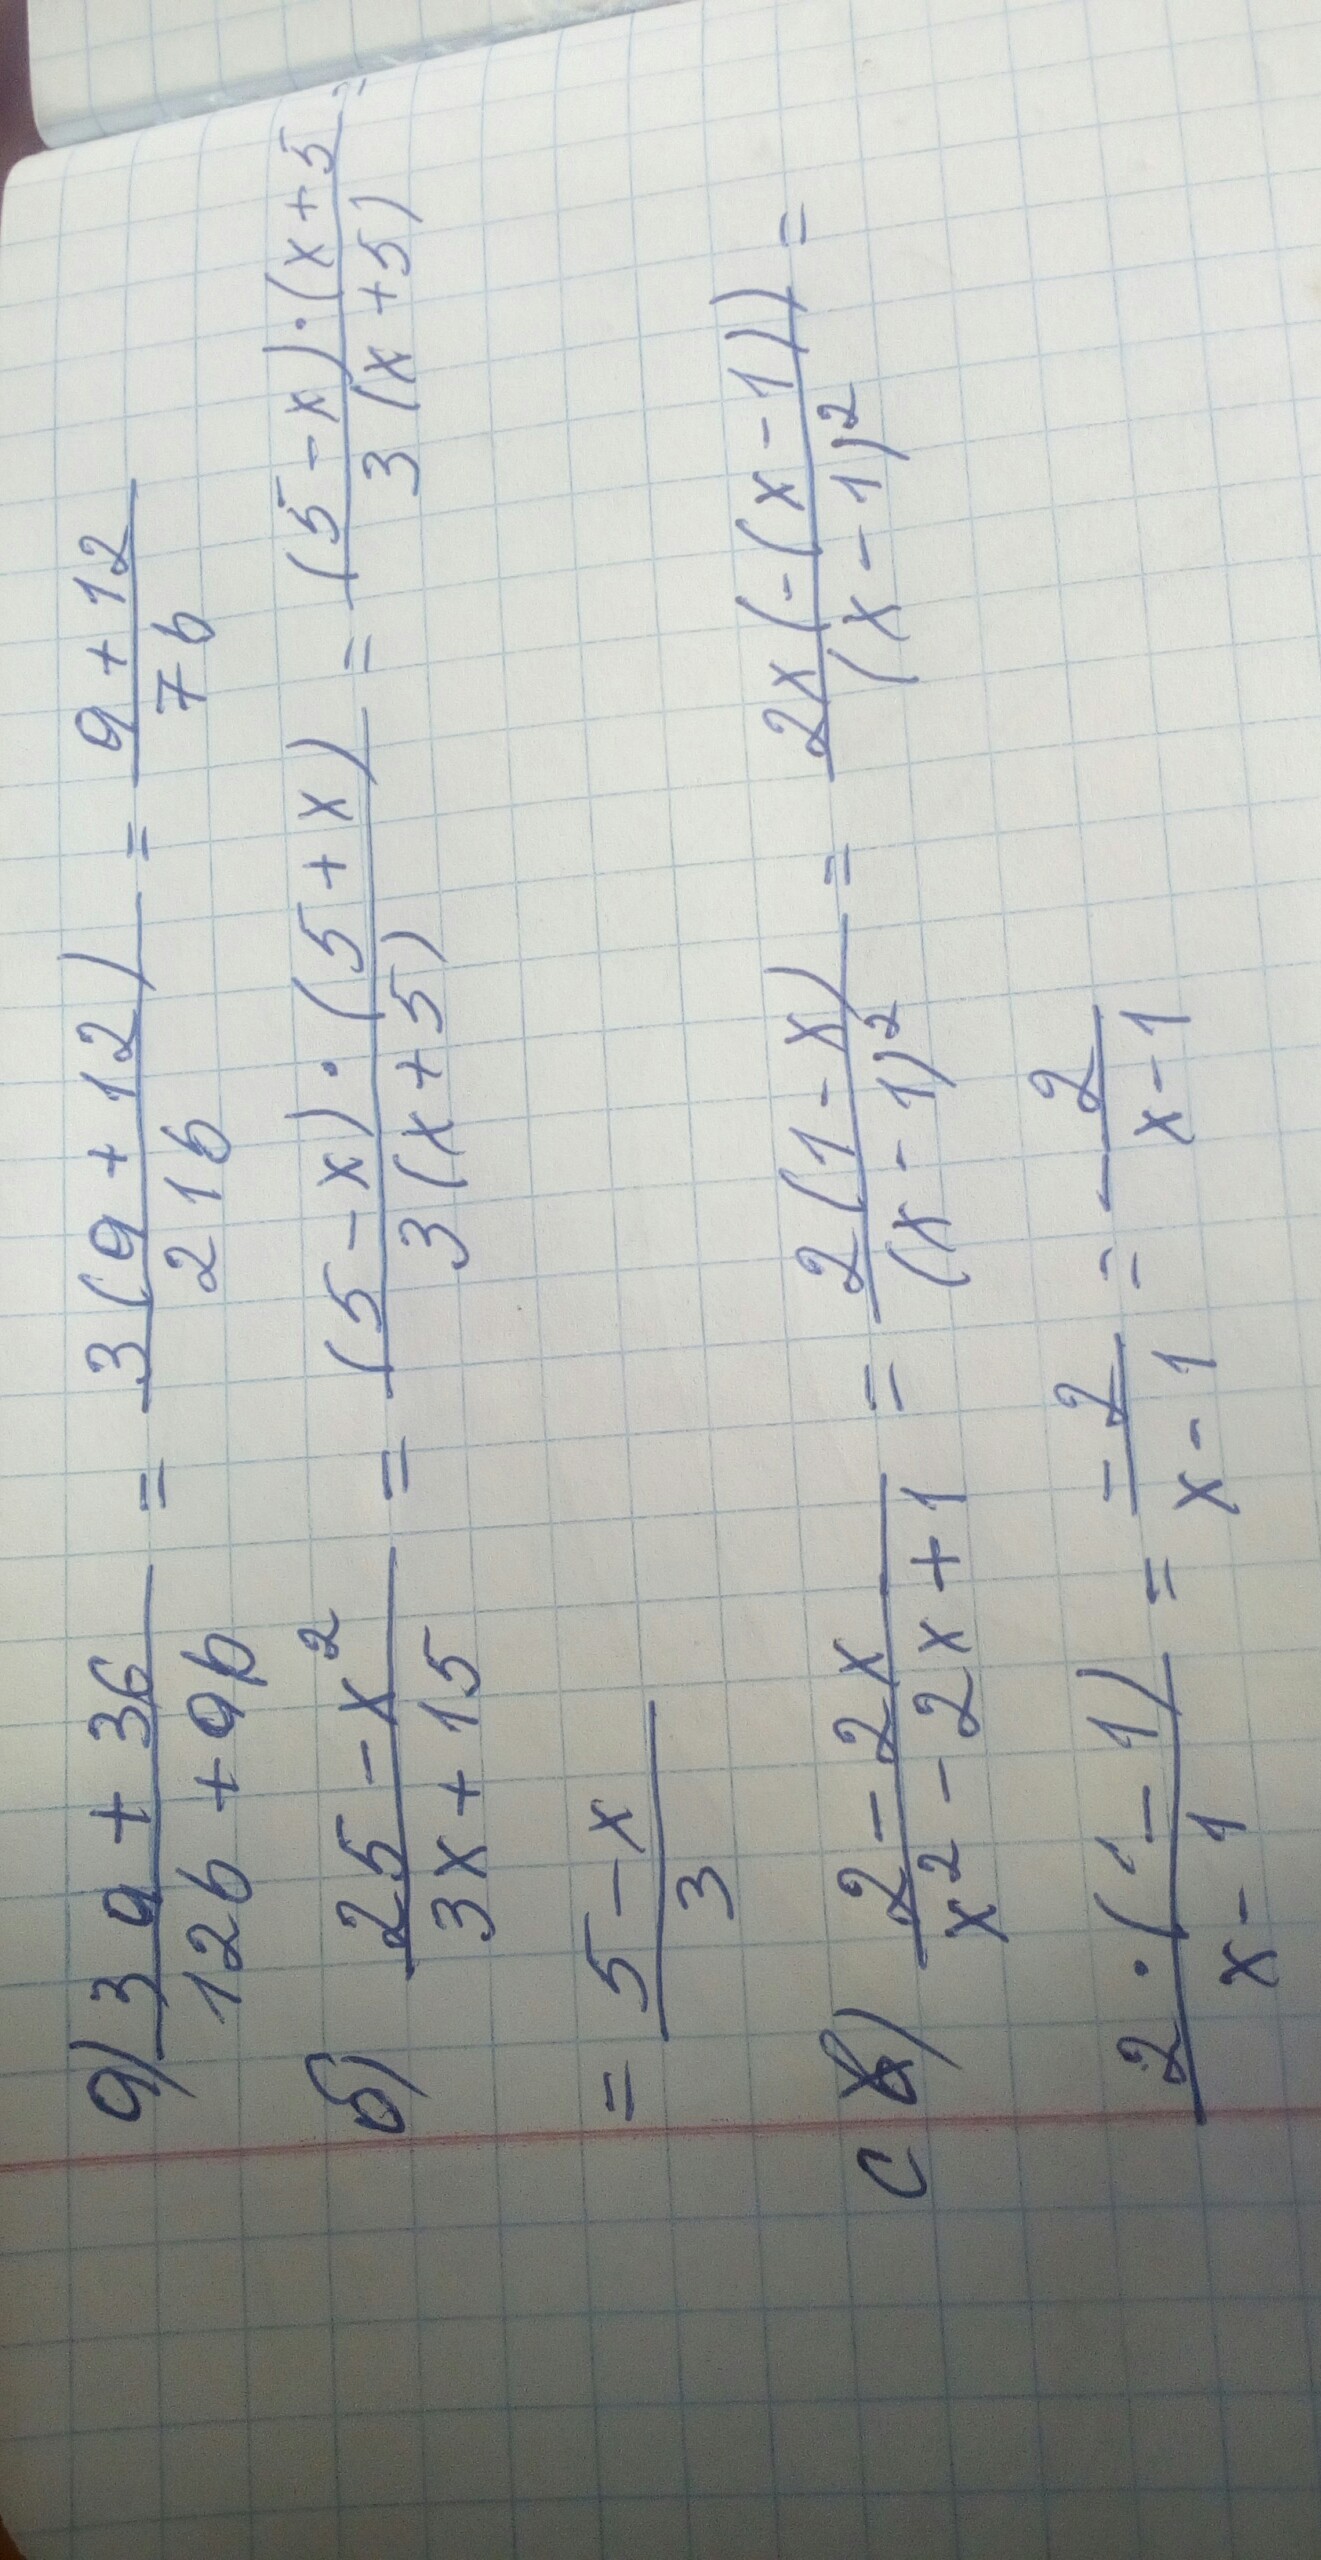 а) (3a + 36)/(12b + 9b) = 3(a + 12)/21b = (a + 12)/7b
б) (25 - x²)/(3x + 15) = (5 - x) · (5 + x)/3(x + 5) = (5 - x) · (x + 5/3(x + 5) =
= (5 - x)/3
c) (2 - 2x)/(x² - 2x + 1) = 2(1 - x)/(x - 1)² = 2x(-(x - 1))/(x - 1)² =
2 · (-1)/(x - 1) = -2/(x - 1) = - 2/(x - 1)